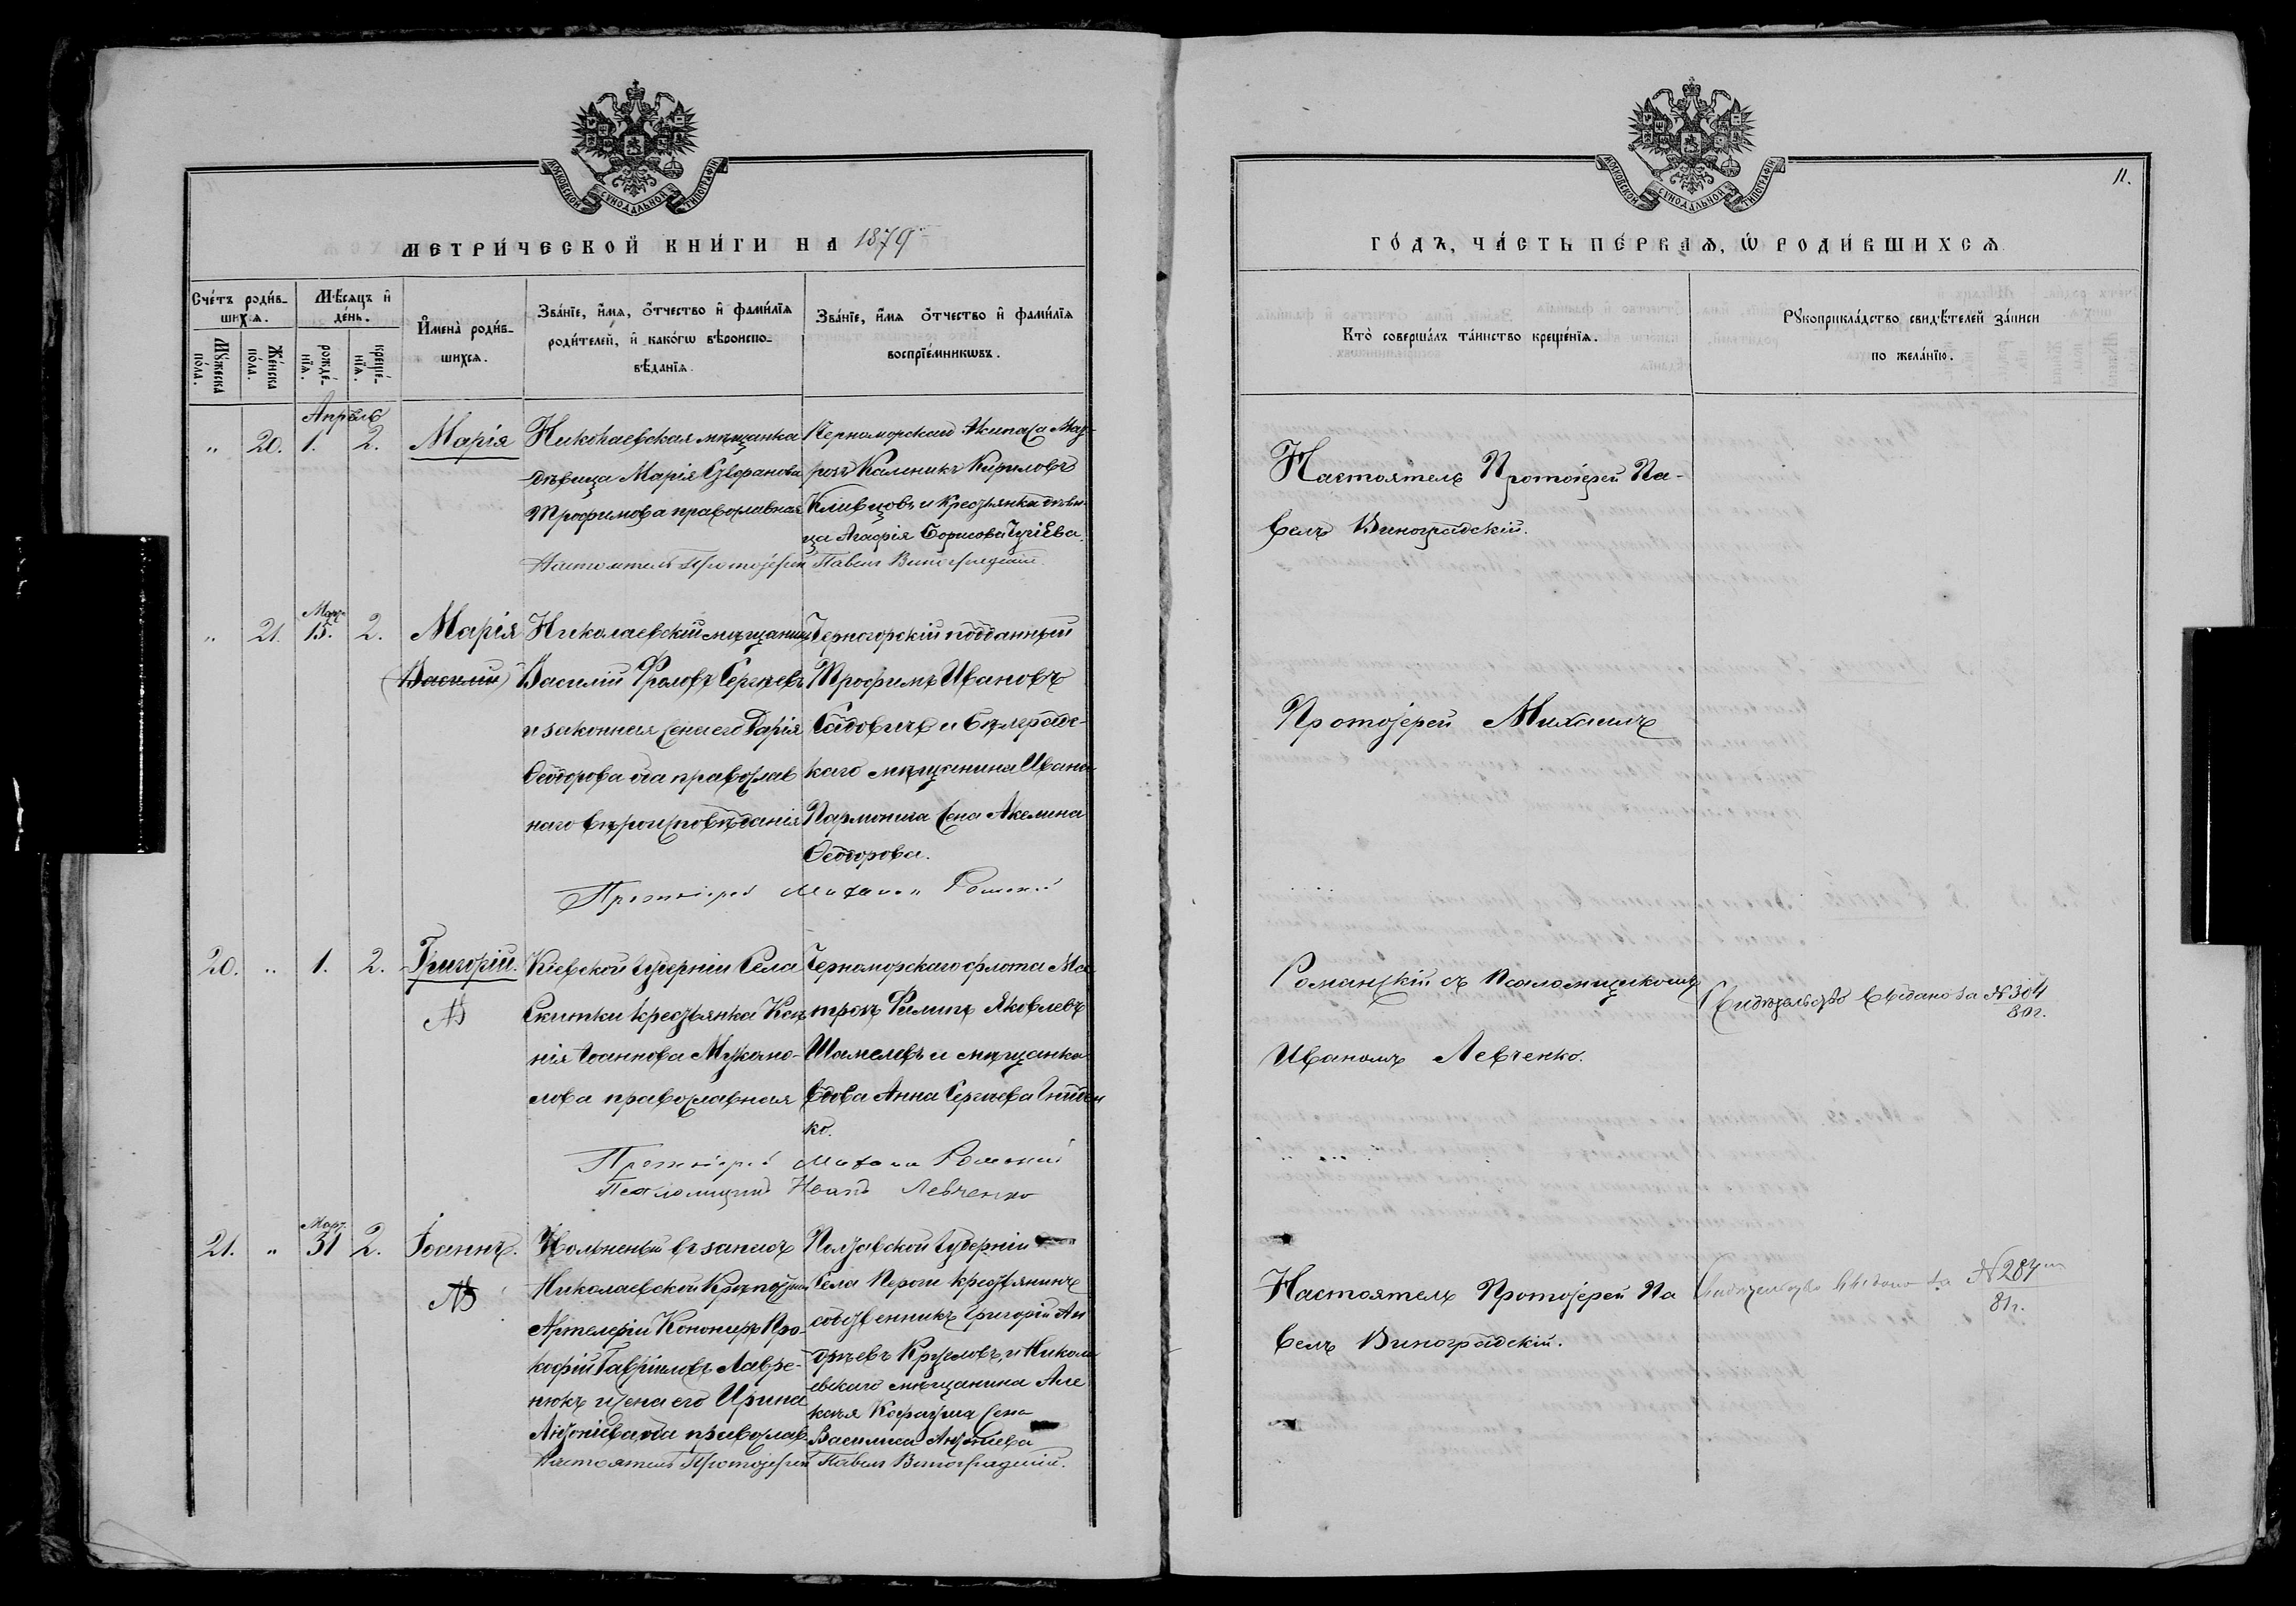 МОСКОВСКОЙ СУНОДАЛЬНОЙ ТИПОГРАФІИ
МЕТРИ́ЧЕСКОЙ КНИ́ГИ НА 1879
Сче́тъ роди́в-
шихсѧ.
Мѣ́сѧцъ и҆
де́нь.
Мꙋ́жеска по́ла.
Же́нска по́ла.
рожде́-нїѧ.
креще́-нїѧ.
И҆мена̀ роди́в-
шихсѧ.
Зва́нїе, и҆́мѧ, ѻ҆́тчество и҆ фами́лїѧ
роди́телей, и҆ како́гѡ вѣроиспо-
вѣ́данїѧ.
Зва́нїе, и҆́мѧ ѻ҆́тчество и҆ фами́лїѧ
воспрїе́мникѡвъ.
Апрѣль
" 20. 1. 2. Марія
Николаевская мѣщанка
дѣвица Марія
Трофимова православная
Черноморскаго Экипажа Мат-
росъ Калиникъ Кириловъ
и крестьянка дѣви-
ца Агафія Борисова
Настоятель Протоіерей Павелъ Виноградскій
Март.
" 21. 15. 2. Марія
(Василій)
Николаевскій мѣщанинъ
Василій Фроловъ Сергѣевъ
и законная жена его Дарія
Ѳеодорова оба православ
наго вѣроисповѣданія
Черногорскій подданный
Трофимъ Ивановъ
Садовичъ и Бѣлградс-
каго мѣщанина Ивана
жена Акелина
Ѳеодорова.
Протоіерей Михаилъ
20. " 1. 2. Григорій.
NB
Кіевской губерніи Села
Скитки крестьянка Ксе
нія Іоаннова
лова православная
Черноморскаго флота Ма
тросъ Филипъ Яковлевъ
и мѣщанка
вдова Анна Сергѣева
ко.
Протоіерей Михаилъ
Псаломщикъ Иванъ Левченко
Март.
21. " 31 2. Іоаннъ.
NB
въ запасъ
Николаевской Крѣпостной
Артелеріи Канониръ Про-
кофій Гавріиловъ Лавре-
нюкъ и жена его Ирина
Антоніева оба православ.
Полтавской губерніи
Села Пероги крестьянинъ
собственникъ Григорій Ан
дрѣевъ и Никола
евскаго мѣщанина Але
ксѣя жена
Василиса Антоніева
Настоятель Протоіерей Павелъ Виноградскій.
МОСКОВСКОЙ СУНОДАЛЬНОЙ ТИПОГРАФІИ
11.
ГО́ДЪ, ЧА́СТЬ ПЕ́РВАѦ, Ѡ҆ РОДИ́ВШИХСѦ
Кто̀ соверша́лъ та́инство креще́нїѧ.
Рꙋкоприкла́дство свидѣ́телей за́писи
по жела́нїю.
Настоятель Протоіерей Па-
велъ Виноградскій.
Протоіерей Михаилъ
Романскій съ Псаломщикомъ
Иваномъ Левченко.
Свидѣтельство выдано за № 304
80г.
Настоятель Протоіерей Па
велъ Виноградскій.
Свидѣтельство выдано за № 287
81г.